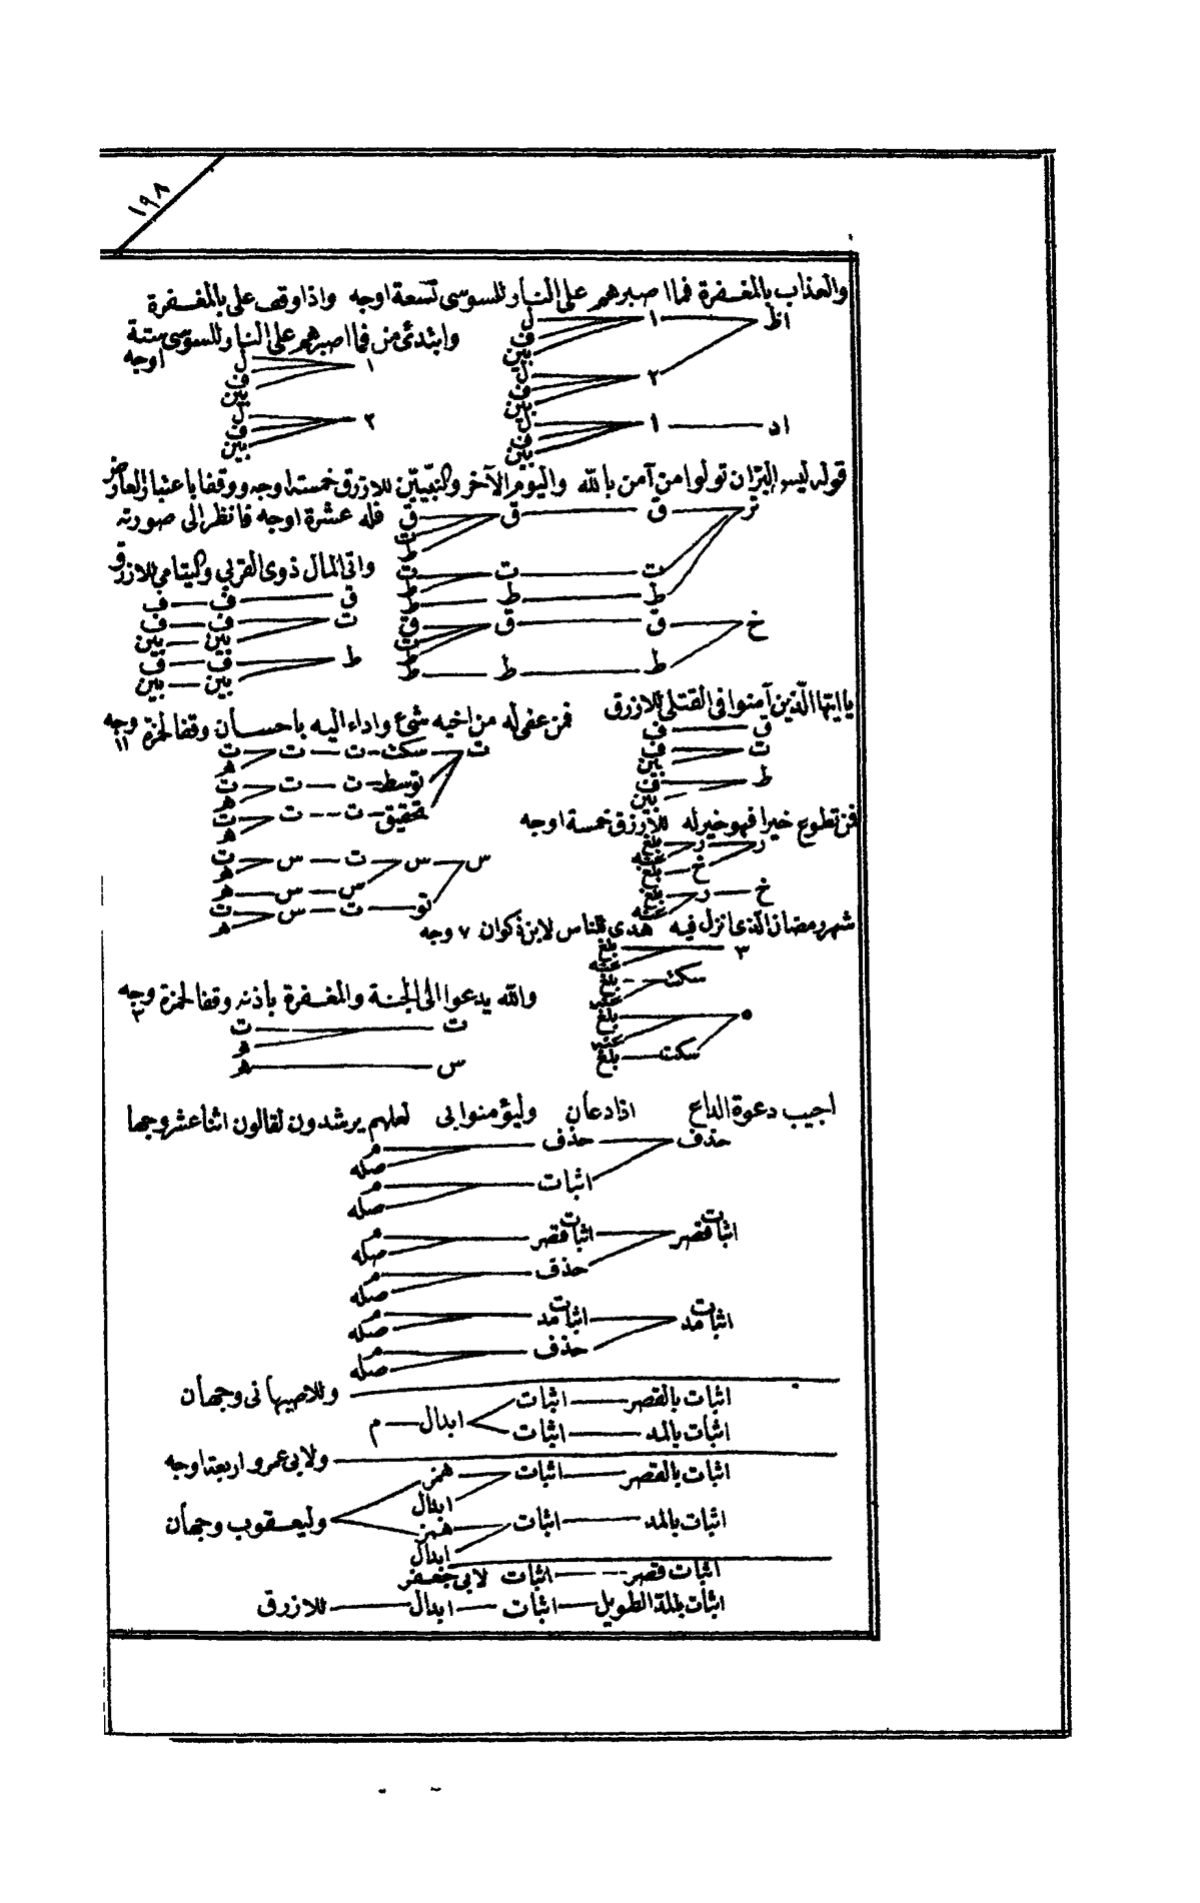 ١٩٨
والعذاب بالمغفرة فما اصبرهم على النار للسوسى تسعة اوجه واذا وقف على بالمغفرة
وابتدئ من فما اصبرهم على النار للسوسى ستة اوجه
اظ ١ ل ف بين
٢ ل ف بين
اد ١ ل ف بين
١ ل ف بين
٢ ل ف بين
قوله ليس البرّ ان تولوا من آمن بالله واليوم الآخر والنبيّين للازرق خمسة اوجه ووقفا باعتبار العارض
فله عشرة اوجه فانظر الى صورته
تر ق ق ق ت ط
ت ت ت ط
ط ط ط
خ ق ق ق ت ط
ط ط ط
واتى المال ذوى القربى واليتامى للازرق
ق ف ف
ت ف ف
بين بين
ط ف ف
بين بين
ياايها الّذين آمنوا فى القتلى للازرق
ق ف
ت ف بين
ط ف بين
فمن عفى له من اخيه شئ واداء اليه باحسان وقفا لحمزة وجه ١١
ت سكت ت ت ت ه
توسط ت ت ت ه
تحقيق ت ت ت ه
س س ت س ت ه
س س ه
تو ت س ت ه
فمن تطوع خيرا فهو خير له للازرق خمسة اوجه
ر ر بلغ غنه
خ بلغ
خ ر بلغ غنه
شهر رمضان الذى انزل فيه هدى للناس لابن ذكوان ٧ وجه
٣ بلغ غنه
سكت بلغ غنه
٥ بلغ غنه
سكت بلغ
والله يدعوا الى الجنة والمغفرة باذنه وقفا لحمزة وجه ٣
ت ت ه
س ه
اجيب دعوة الداع اذا دعان وليؤمنوا بى لعلهم يرشدون لقالون اثنا عشر وجها
حذف حذف م صله
اثبات م صله
اثبات قصر اثبات قصر م صله
حذف م صله
اثبات مد اثبات مد م صله
حذف م صله
وللاصبهانى وجهان
اثبات بالقصر اثبات
اثبات بالمد اثبات ابدال م
ولابى عمرو اربعة اوجه
اثبات بالقصر اثبات همز ابدال
اثبات بالمد اثبات همز ابدال
وليعقوب وجهان
اثبات قصر اثبات لابى جعفر
اثبات بالمد الطويل اثبات ابدال للازرق